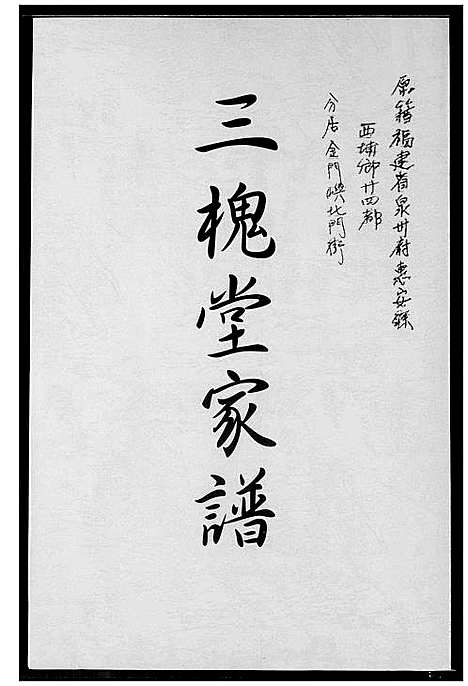 原籍福建省泉州府惠安縣
西埔鄉廿四都
分居金門嶼北門街
三槐堂家譜